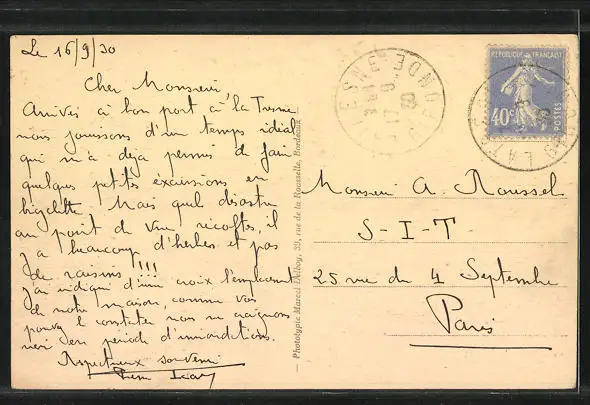 Le 16/9/30
Cher Monsieur,
Arrivés à bon port à la Tresne
nous jouissons d'un temps idéal
qui m'a deja permis de faire
quelques petites éxcursions en
bigclette. Mais quel désastre
au point de vue, récoltes, il
y a beaucoup d'herbes et pas
de raisins !!!
J'ai indiqué d'une croix l'emplacement
de notre maison, comme vous
pouvez le constater nous ne craignons
rien en période d'inondations.
Respectueux souvenir
Pierre
Phototypie Marcel Delboy, 39, rue de la Rousselle, Bordeaux
GIRONDE
REPUBLIQUE FRANÇAISE
40c
POSTES
Monsieur A. Roussel
S-I-T-
25 rue du 4 Septembre
Paris